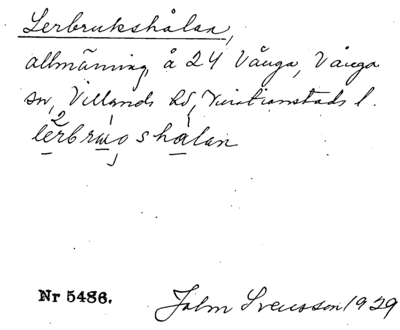 Lerbrukshålan,
allmänning å 24 Vånga, Vånga
sn, Villands hd, Kristianstads l.
lerbruoshalan
Nr 5486. John Svensson 1929